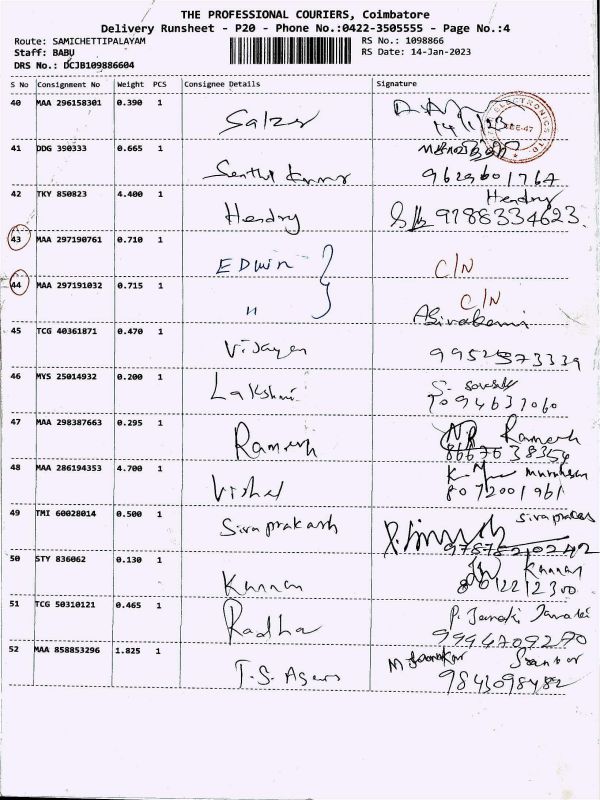 THE PROFESSIONAL COURIERS, Coimbatore
Delivery Runsheet - P20 - Phone No.:0422-3505555 - Page No.:4
Route: SAMICHETTIPALAYAM
RS No.: 1098866
Staff: BABU
RS Date: 14-Jan-2023
DRS No.: DCJB109886604
S No Consignment No Weight PCS Consignee Details Signature
40 MAA 296158301 0.390 1 Salzer
14/1/23
41 DDG 390333 0.665 1 Senthil Kumar
9629601767
42 TKY 850823 4.400 1 Hendry Hendry
9188334623
43 MAA 297190761 0.710 1 EDwin C/N
44 MAA 297191032 0.715 1 " C/N
45 TCG 40361871 0.470 1 Vijayan
46 MYS 25014932 0.200 1 Lakshmi
7094637060
47 MAA 298387663 0.295 1 Ramesh Ramesh
8667638354
48 MAA 286194353 4.700 1 Vishal Murugesan
8072001961
49 TMI 60028014 0.500 1 Sivaprakash
9787820242
50 STY 836062 0.130 1 Kannan Kannan
8012212300
51 TCG 50310121 0.465 1 Radha P. Janaki Janaki
9994709270
52 MAA 858853296 1.825 1 T.S.
9843098482